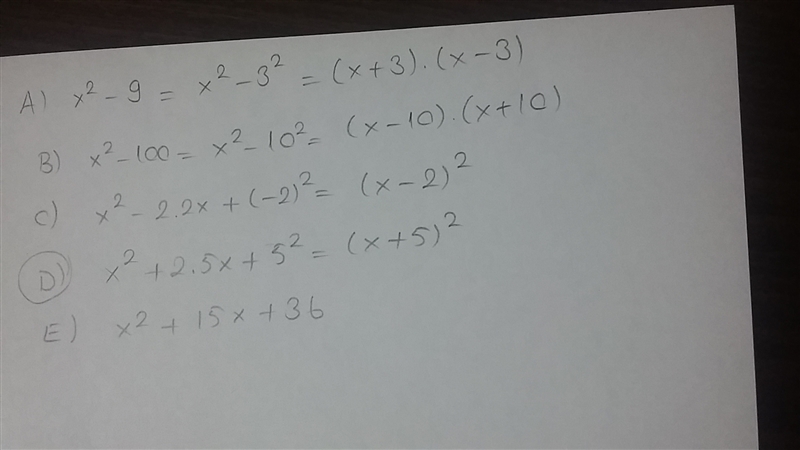 A) x² - 9 = x² - 3² = (x + 3) . (x - 3)
B) x² - 100 = x² - 10² = (x - 10) . (x + 10)
C) x² - 2.2x + (-2)² = (x - 2)²
D) x² + 2.5x + 5² = (x + 5)²
E) x² + 15x + 36